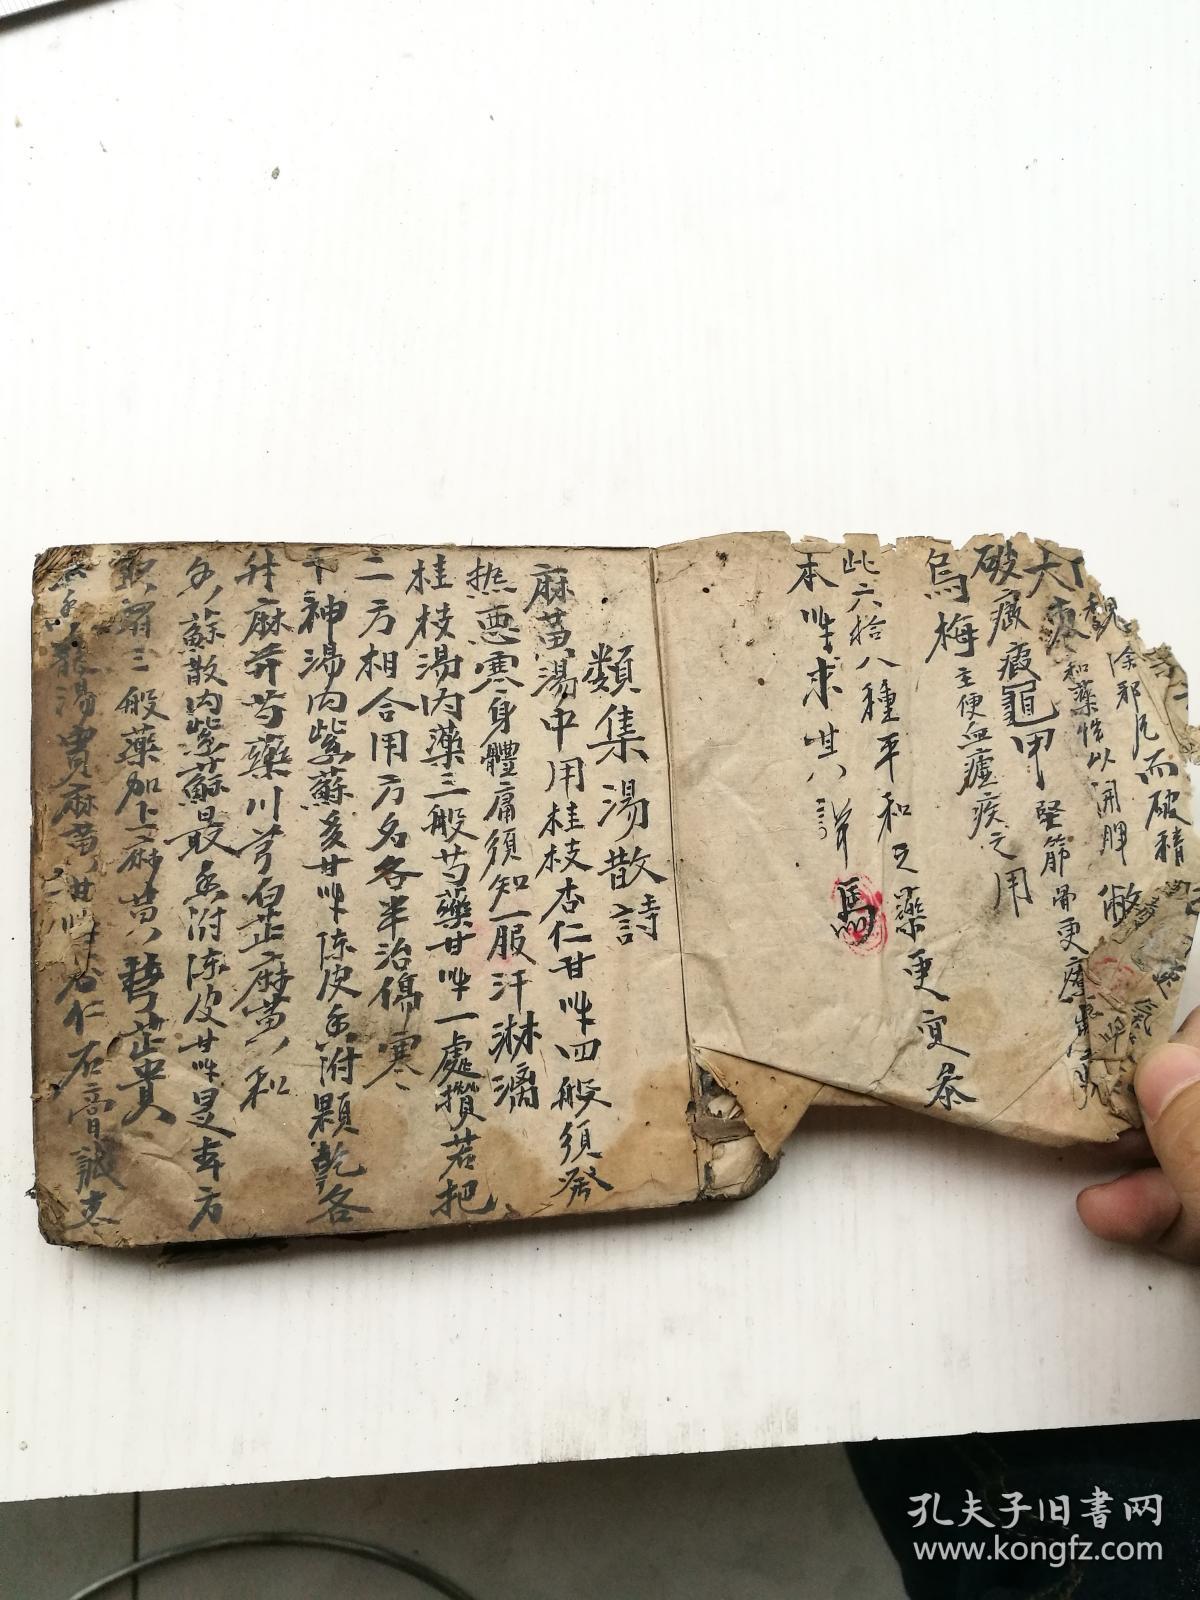 除邪氣而破積
大棗
和藥性以開脾
破癥瘕龜甲堅筋骨更療
烏梅主便血瘧疾之用
此六拾八種平和之藥更宜參
本艸求其詳
類集湯散詩
麻黃湯中用桂枝杏仁甘艸四般須發
熱惡寒身體庸須知一服汗淋漓
桂枝湯內藥三般芍藥甘艸一處攢若把
二方相合用方名各半治傷寒
十神湯內紫蘇多甘艸陳皮香附顆乾各
升麻并芍藥川芎白芷麻黃和
香蘇散內紫蘇最香附陳皮甘艸是本方
三般藥加上麻黃芎芷貴
龍湯 麻黃甘艸杏仁石膏
孔夫子旧书网
www.kongfz.com